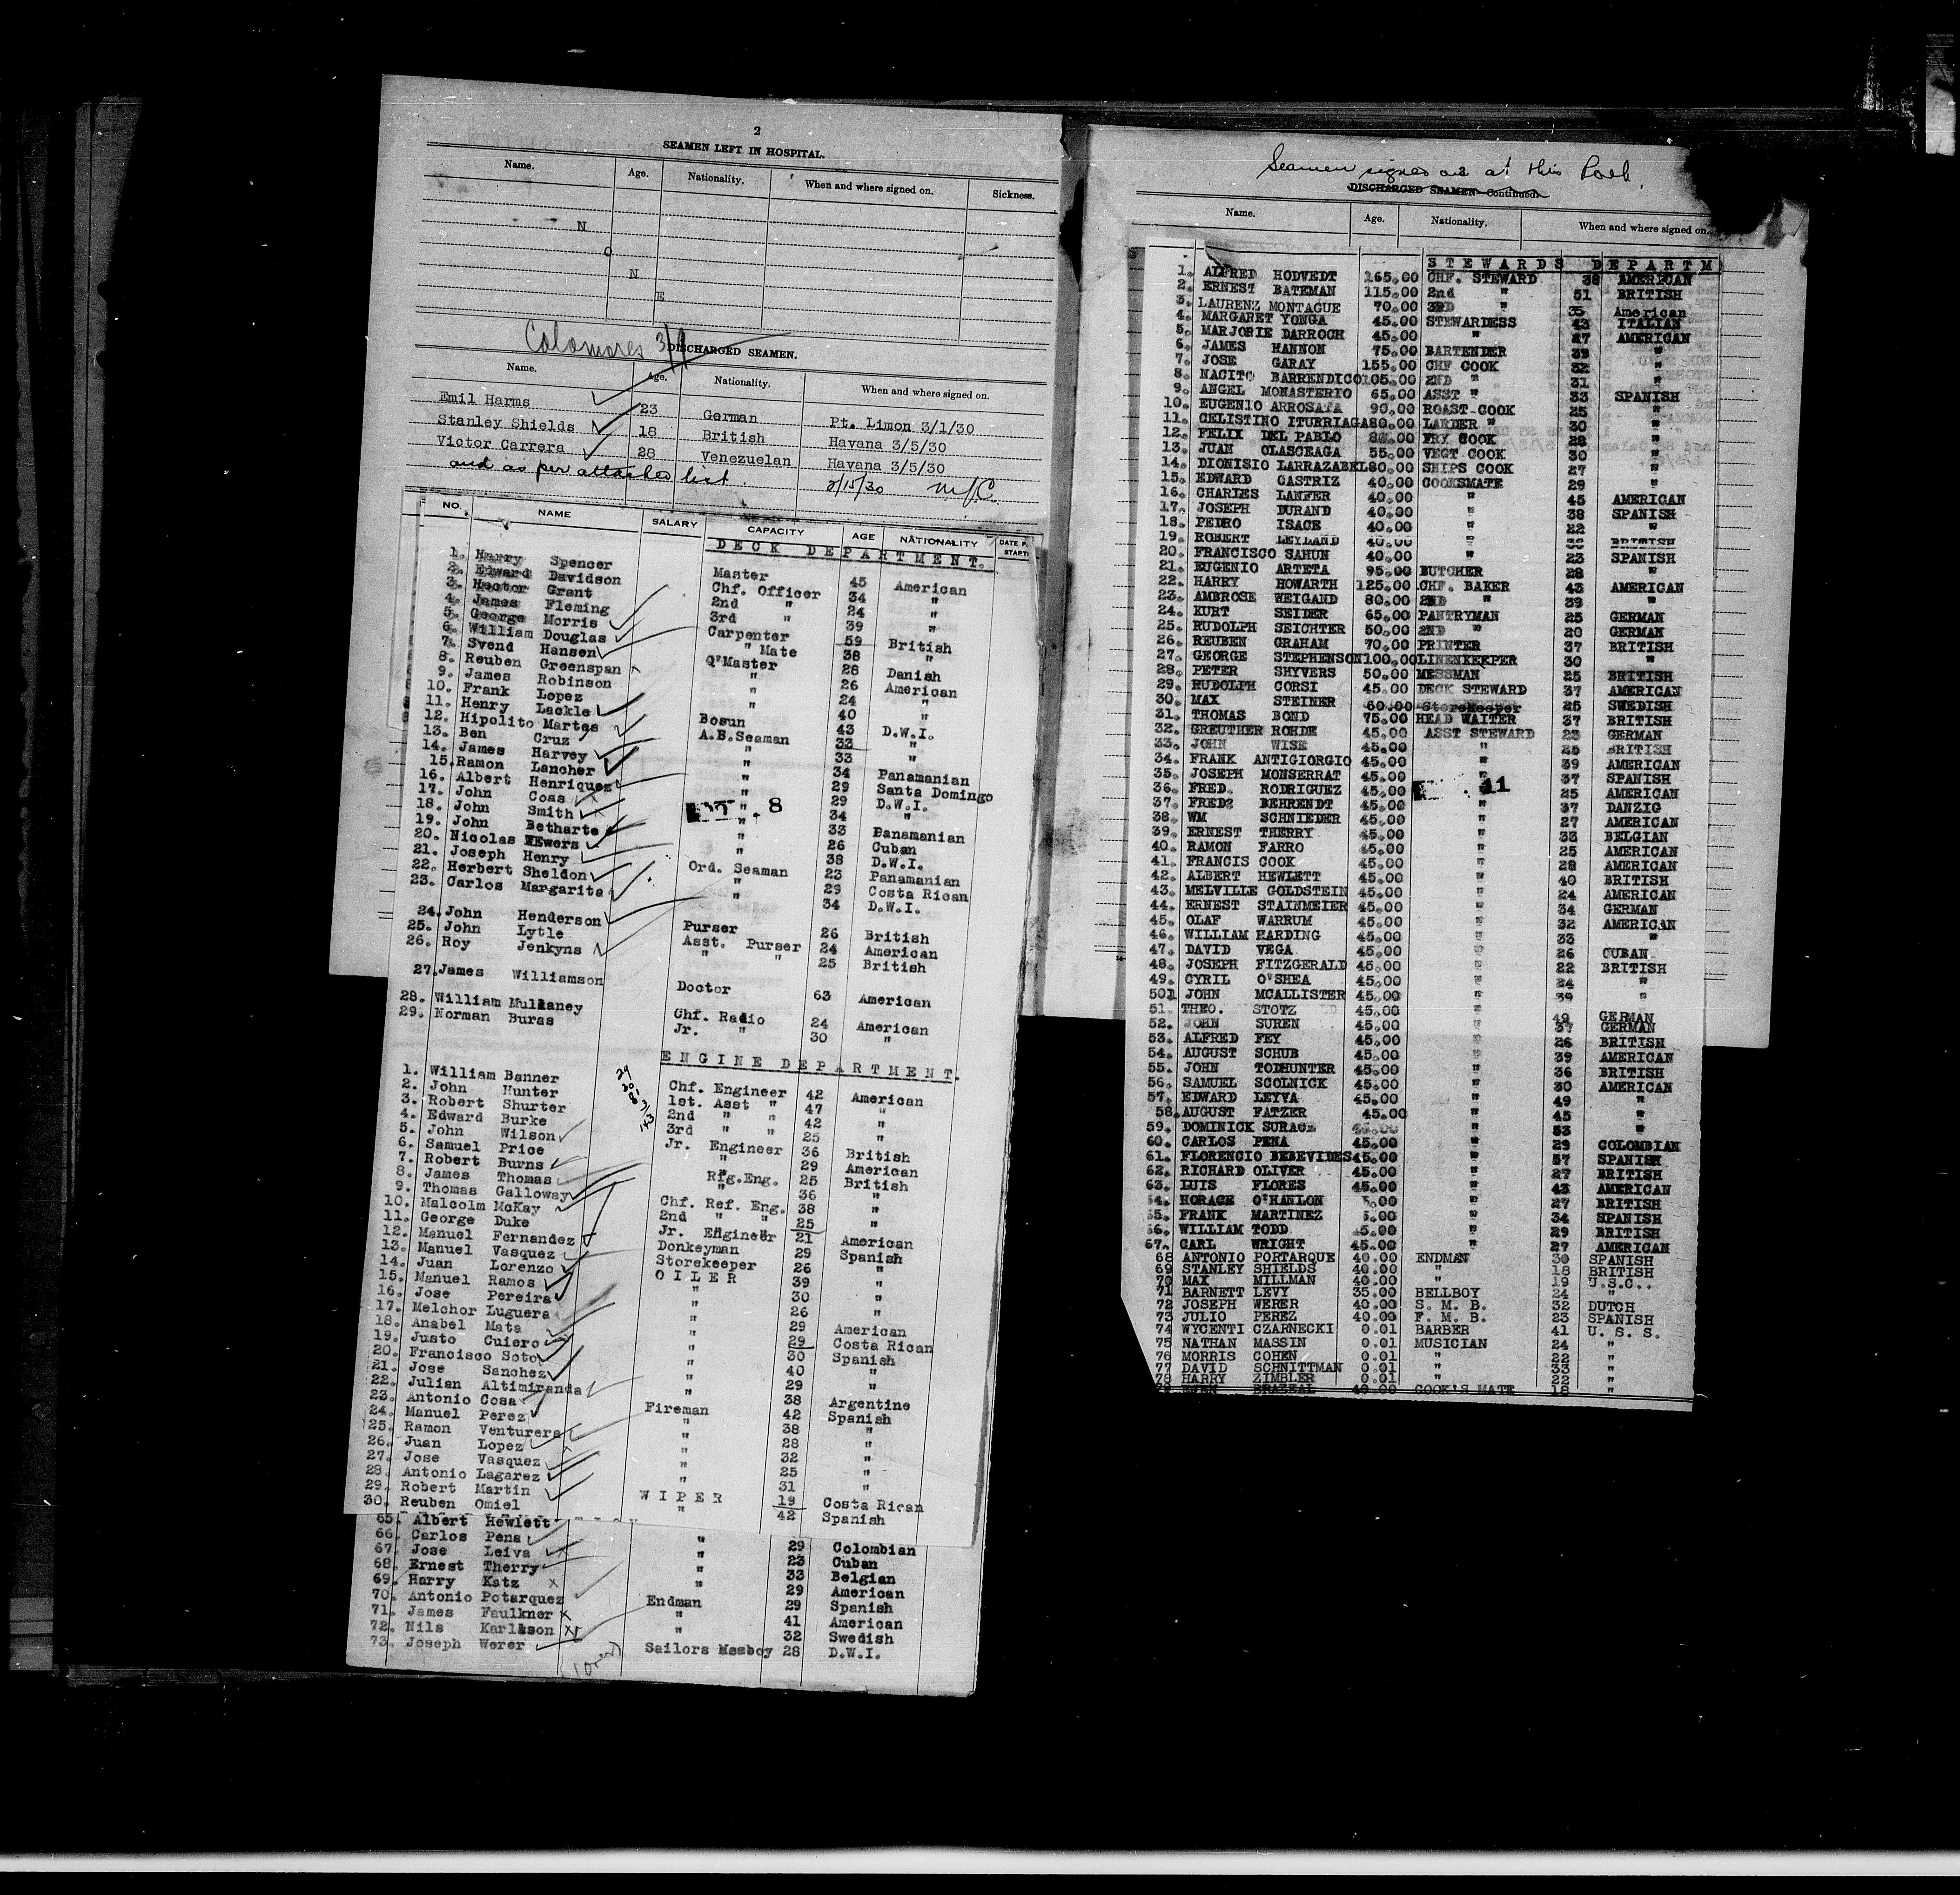 2
SEAMEN LEFT IN HOSPITAL.
Name. Age. Nationality. When and where signed on. Sickness.
N
O
N
E
Calamares 3/9
DISCHARGED SEAMEN.
Name. Age. Nationality. When and where signed on.
Emil Harms 23 German Pt. Limon 3/1/30
Stanley Shields 18 British Havana 3/5/30
Victor Carrera 28 Venezuelan Havana 3/5/30
and as per attached list.
NO. NAME SALARY CAPACITY AGE NATIONALITY
DECK DEPARTMENT.
1. Harry Spencer Master 45 American
2. Edward Davidson Chf. Officer 34 "
3. Hector Grant 2nd " 24 "
4. James Fleming 3rd " 39 "
5. George Morris Carpenter 59 British
6. William Douglas " Mate 38 "
7. Svend Hansen Q'Master 28 Danish
8. Reuben Greenspan " 26 American
9. James Robinson " 24 "
10. Frank Lopez " 40 "
11. Henry Lackle Bosun 43 D.W.I.
12. Hipolito Martes A.B.Seaman 33 "
13. Ben Cruz " 33 "
14. James Harvey " 34 Panamanian
15. Ramon Lancher " 29 Santo Domingo
16. Albert Henriquez " 29 D.W.I.
17. John Coas " 34 "
18. John Smith " 33 Panamanian
19. John Betharte " 26 Cuban
20. Nicolas Ewers " 38 D.W.I.
21. Joseph Henry Ord. Seaman 23 Panamanian
22. Herbert Sheldon " 29 Costa Rican
23. Carlos Margarita " 34 D.W.I.
24. John Henderson Purser 26 British
25. John Lytle Asst. Purser 24 American
26. Roy Jenkyns " " 25 British
27. James Williamson Doctor 63 American
28. William Mullaney Chf. Radio 24 American
29. Norman Buras Jr. " 30 "
ENGINE DEPARTMENT.
1. William Banner Chf. Engineer 42 American
2. John Hunter 1st. Asst " 47 "
3. Robert Shurter 2nd " " 42 "
4. Edward Burke 3rd " " 25 "
5. John Wilson Jr. Engineer 36 British
6. Samuel Price " 29 American
7. Robert Burns Rfg.Eng. 25 British
8. James Thomas " 36 "
9. Thomas Galloway Chf. Ref. Eng. 38 "
10. Malcolm McKay 2nd " " 25 "
11. George Duke Jr. Engineer 21 American
12. Manuel Fernandez Donkeyman 29 Spanish
13. Manuel Vasquez Storekeeper 26 "
14. Juan Lorenzo OILER 39 "
15. Manuel Ramos " 30 "
16. Jose Pereira " 26 "
17. Melchor Luguera " 29 American
18. Anabel Mata " 29 Costa Rican
19. Justo Cuiero " 30 Spanish
20. Francisco Soto " 40 "
21. Jose Sanchez " 29 "
22. Julian Altimiranda " 38 Argentine
23. Antonio Cosa Fireman 42 Spanish
24. Manuel Perez " 38 "
25. Ramon Venturera " 28 "
26. Juan Lopez " 32 "
27. Jose Vasquez " 25 "
28. Antonio Lagarez " 31 "
29. Robert Martin WIPER 19 Costa Rican
30. Reuben Omiel " 42 Spanish
65. Albert Hewlett
66. Carlos Pena " 29 Colombian
67. Jose Leiva " 23 Cuban
68. Ernest Therry " 33 Belgian
69. Harry Katz " 29 American
70. Antonio Potarquez Endman 29 Spanish
71. James Faulkner " 41 American
72. Nils Karlsson " 32 Swedish
73. Joseph Werer Sailors Messboy 28 D.W.I.
Seamen signed on at this Port.
DISCHARGED SEAMEN—Continued.
Name. Age. Nationality. When and where signed on.
STEWARDS DEPARTM
1. ALFRED HODVEDT 165.00 CHF. STEWARD 38 AMERICAN
2. ERNEST BATEMAN 115.00 2nd " 51 BRITISH
3. LAURENZ MONTAGUE 70.00 3RD " 35 American
4. MARGARET YONGA 45.00 STEWARDESS 43 ITALIAN
5. MARJORIE DARROCH 45.00 " 27 AMERICAN
6. JAMES HANNON 75.00 BARTENDER 39 "
7. JOSE GARAY 155.00 CHF COOK 32 "
8. NACITO BARRENDICO 105.00 2ND " 31 "
9. ANGEL MONASTERIO 65.00 ASST " 33 SPANISH
10. EUGENIO ARROSATA 90.00 ROAST COOK 25 "
11. CELISTINO ITURRIAGA 80.00 LARDER " 30 "
12. FELIX DEL PABLO FRY COOK 28 "
13. JUAN OLASCEAGA 55.00 VEGT COOK 30 "
14. DIONISIO LARRAZABEL 80.00 SHIPS COOK 27 "
15. EDWARD CASTRIZ 40.00 COOKSMATE 29 "
16. CHARLES LANFER 40.00 " 45 AMERICAN
17. JOSEPH DURAND 40.00 " 38 SPANISH
18. PEDRO ISACE 40.00 " 22 "
19. ROBERT LEYLAND 40.00 " BRITISH
20. FRANCISCO SAHUN 40.00 " 23 SPANISH
21. EUGENIO ARTETA 95.00 BUTCHER 28 "
22. HARRY HOWARTH 125.00 CHF. BAKER 43 AMERICAN
23. AMBROSE WEIGAND 80.00 2ND " 39 "
24. KURT SEIDER 65.00 PANTRYMAN 25 GERMAN
25. RUDOLPH SEICHTER 50.00 2ND " 20 GERMAN
26. REUBEN GRAHAM 70.00 PRINTER 37 BRITISH
27. GEORGE STEPHENSON 100.00 LINENKEEPER 30 "
28. PETER SHYVERS 50.00 MESSMAN 25 BRITISH
29. RUDOLPH CORSI 45.00 DECK STEWARD 37 AMERICAN
30. MAX STEINER 60.00 Storekeeper 25 SWEDISH
31. THOMAS BOND 75.00 HEAD WAITER 37 BRITISH
32. GREUTHER ROHDE 45.00 ASST STEWARD 23 GERMAN
33. JOHN WISE 45.00 " 25 BRITISH
34. FRANK ANTIGIORGIO 45.00 " 39 AMERICAN
35. JOSEPH MONSERRAT 45.00 " 37 SPANISH
36. FRED. RODRIGUEZ 45.00 25 AMERICAN
37. FRED? BEHRENDT 45.00 " 37 DANZIG
38. WM SCHNIEDER 45.00 " 27 AMERICAN
39. ERNEST THERRY 45.00 " 33 BELGIAN
40. RAMON FARRO 45.00 " 25 AMERICAN
41. FRANCIS COOK 45.00 " 28 AMERICAN
42. ALBERT HEWLETT 45.00 " 40 BRITISH
43. MELVILLE GOLDSTEIN 45.00 " 24 AMERICAN
44. ERNEST STAINMEIER 45.00 " 34 GERMAN
45. OLAF WARRUM 45.00 " 32 AMERICAN
46. WILLIAM HARDING 45.00 " 33 "
47. DAVID VEGA 45.00 " 26 CUBAN
48. JOSEPH FITZGERALD 45.00 " 22 BRITISH
49. CYRIL O'SHEA 45.00 " 24 "
50. JOHN MCALLISTER 45.00 " 39 "
51. THEO. STOTZ 45.00 " 49 GERMAN
52. JOHN SUREN 45.00 " 37 GERMAN
53. ALFRED FEY 45.00 " 26 BRITISH
54. AUGUST SCHUB 45.00 " 39 AMERICAN
55. JOHN TODHUNTER 45.00 " 36 BRITISH
56. SAMUEL SCOLNICK 45.00 " 30 AMERICAN
57. EDWARD LEYVA 45.00 " 49 "
58. AUGUST FATZER 45.00 " 45 "
59. DOMINICK SURACE 45.00 " 53 "
60. CARLOS PENA 45.00 " 29 COLOMBIAN
61. FLORENCIO BEBEVIDES 45.00 " 57 SPANISH
62. RICHARD OLIVER 45.00 " 27 BRITISH
63. LUIS FLORES 45.00 " 43 AMERICAN
64. HORACE O'HANLON 5.00 " 27 BRITISH
65. FRANK MARTINEZ 5.00 " 34 SPANISH
66. WILLIAM TODD 45.00 " 29 BRITISH
67. CARL WRIGHT 45.00 " 27 AMERICAN
68 ANTONIO PORTARQUE 40.00 ENDMAN 30 SPANISH
69 STANLEY SHIELDS 40.00 " 18 BRITISH
70 MAX MILLMAN 40.00 " 19 U.S.C..
71 BARNETT LEVY 35.00 BELLBOY 24 "
72 JOSEPH WERER 40.00 S. M. B. 32 DUTCH
73 JULIO PEREZ 40.00 F. M. B. 23 SPANISH
74 WYCENTI CZARNECKI 0.01 BARBER 41 U. S. S.
75 NATHAN MASSIN 0.01 MUSICIAN 24 "
76 MORRIS COHEN 0.01 " 22 "
77 DAVID SCHNITTMAN 0.01 " 33 "
78 HARRY ZIMBLER 0.01 " 22 "
BRAZEAL 40.00 COOK'S MATE 18 "